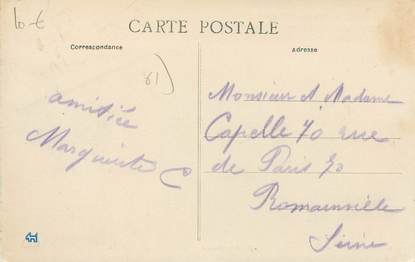 10-€
CARTE POSTALE
Correspondance
Adresse
61)
amitiée
Marguerite C
Monsieur et Madame
Capelle 70 rue
de Paris 70
Romainville
Seine